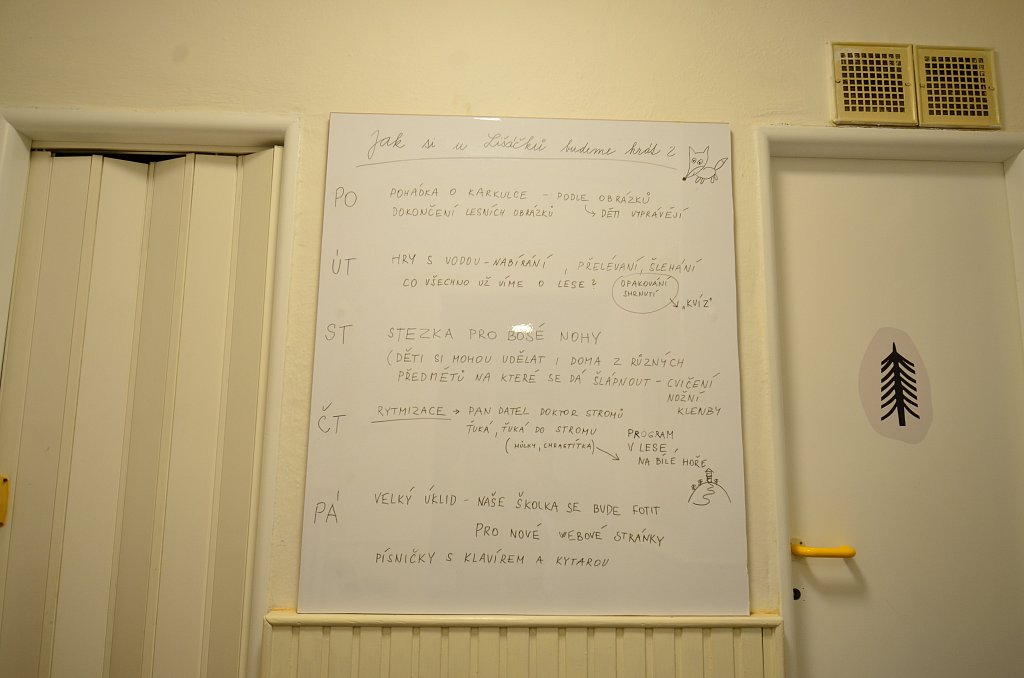 Jak si u Lišáčků budeme hrát?
PO POHÁDKA O KARKULCE - PODLE OBRÁZKŮ
DOKONČENÍ LESNÍCH OBRÁZKŮ ↳ DĚTI VYPRÁVĚJÍ
ÚT HRY S VODOU - NABÍRÁNÍ, PŘELÉVÁNÍ, ŠLEHÁNÍ
CO VŠECHNO UŽ VÍME O LESE?
OPAKOVÁNÍ
SHRNUTÍ
→ „KVÍZ"
ST STEZKA PRO BOSÉ NOHY
(DĚTI SI MOHOU UDĚLAT I DOMA Z RŮZNÝCH
PŘEDMĚTŮ NA KTERÉ SE DÁ ŠLÁPNOUT - CVIČENÍ
NOŽNÍ
KLENBY
ČT RYTMIZACE → PAN DATEL DOKTOR STROMŮ
ŤUKÁ, ŤUKÁ DO STROMU
(HŮLKY, CHRASTÍTKA)
PROGRAM
V LESE
NA BÍLÉ HOŘE
PÁ VELKÝ ÚKLID - NAŠE ŠKOLKA SE BUDE FOTIT
PRO NOVÉ WEBOVÉ STRÁNKY
PÍSNIČKY S KLAVÍREM A KYTAROU